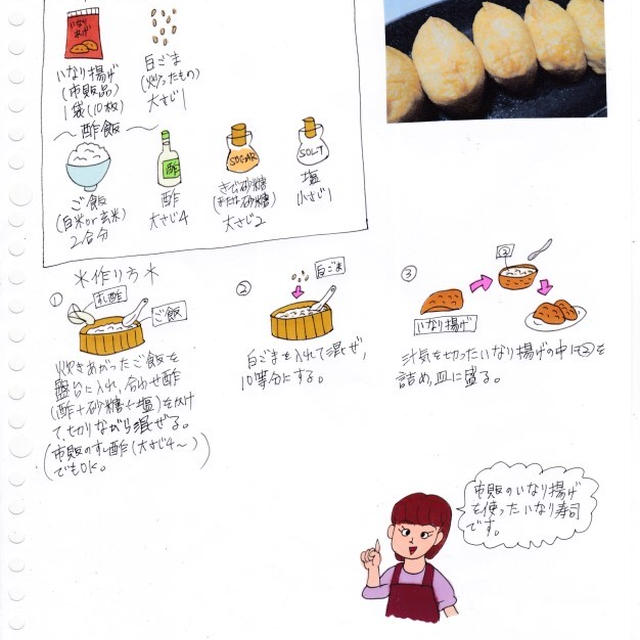 いなり
あげ
いなり揚げ
(市販品)
1袋(10枚)
白ごま
(炒ったもの)
大さじ1
〜酢飯〜
ご飯
(白米or玄米)
2合分
酢
酢
大さじ4
SOGAR
きび砂糖
(または砂糖)
大さじ2
SOLT
塩
小さじ1
*作り方*
①
すし酢
ご飯
炊きあがったご飯を
盤台に入れ、合わせ酢
(酢+砂糖+塩)をかけ
て、切りながら混ぜる。
(市販のすし酢(大さじ4〜)
でもOK。)
②
白ごま
白ごまを入れて混ぜ、
10等分にする。
③
②
いなり揚げ
汁気を切ったいなり揚げの中に②を
詰め、皿に盛る。
市販のいなり揚げ
を使ったいなり寿司
です。